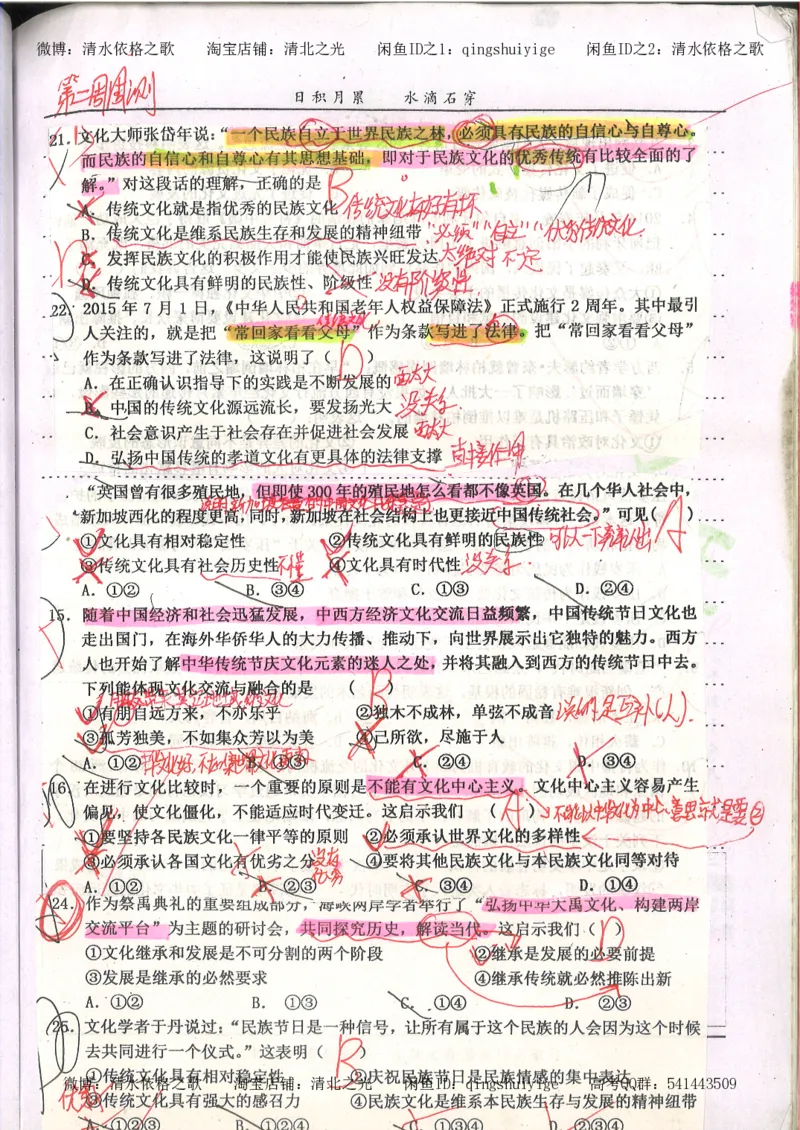 微博：清水依格之歌 淘宝店铺：清北之光 闲鱼ID之1：qingshuiyige 闲鱼ID之2：清水依格之歌
第一周周测
日积月累 水滴石穿
21.文化大师张岱年说：“一个民族自立于世界民族之林，必须具有民族的自信心与自尊心。
而民族的自信心和自尊心有其思想基础，即对于民族文化的优秀传统有比较全面的了
解。”对这段话的理解，正确的是 B
A．传统文化就是指优秀的民族文化 传统文化有好有坏
B．传统文化是维系民族生存和发展的精神纽带 “必须”“自立” 优秀传统文化
C．发挥民族文化的积极作用才能使民族兴旺发达 太绝对 不一定
D．传统文化具有鲜明的民族性、阶级性 没有阶级性
22．2015 年 7 月 1 日，《中华人民共和国老年人权益保障法》正式施行 2 周年。其中最引
人关注的，就是把“常回家看看父母”作为条款写进了法律。把“常回家看看父母”
作为条款写进了法律，这说明了（ D ）
A．在正确认识指导下的实践是不断发展的
B．中国的传统文化源远流长，要发扬光大 没关系
C．社会意识产生于社会存在并促进社会发展
D．弘扬中国传统的孝道文化有更具体的法律支撑
“英国曾有很多殖民地，但即使 300 年的殖民地怎么看都不像英国。在几个华人社会中，
新加坡西化的程度更高，同时，新加坡在社会结构上也更接近中国传统社会。”可见（ A ）
①文化具有相对稳定性 ②传统文化具有鲜明的民族性
③传统文化具有社会历史性 不懂 ④文化具有时代性 没关系
A．①② B．③④ C．①③ D．②④
15．随着中国经济和社会迅猛发展，中西方经济文化交流日益频繁，中国传统节日文化也
走出国门，在海外华侨华人的大力传播、推动下，向世界展示出它独特的魅力。西方
人也开始了解中华传统节庆文化元素的迷人之处，并将其融入到西方的传统节日中去。
下列能体现文化交流与融合的是 （ B ）
①有朋自远方来，不亦乐乎 ②独木不成林，单弦不成音
③孤芳独美，不如集众芳以为美 ④己所欲，尽施于人
A．①② B．①③ C．②④ D．③④
16．在进行文化比较时，一个重要的原则是不能有文化中心主义。文化中心主义容易产生
偏见，使文化僵化，不能适应时代变迁。这启示我们 （ A ）
①要坚持各民族文化一律平等的原则 ②必须承认世界文化的多样性
③必须承认各国文化有优劣之分 没有优劣 ④要将其他民族文化与本民族文化同等对待
A．①② B．②③ C．③④ D．①④
24．作为祭禹典礼的重要组成部分，海峡两岸学者举行了“弘扬中华大禹文化、构建两岸
交流平台”为主题的研讨会，共同探究历史，解读当代。这启示我们（ D ）
①文化继承和发展是不可分割的两个阶段 ②继承是发展的必要前提
③发展是继承的必然要求 ④继承传统就必然推陈出新
A．①② B．①③ C．①④ D．②③
25．文化学者于丹说过：“民族节日是一种信号，让所有属于这个民族的人会因为这个时候
去共同进行一个仪式。”这表明（ B ）
①传统文化具有相对稳定性 ②庆祝民族节日是民族情感的集中表达
微博：清水依格之歌 淘宝店铺：清北之光 闲鱼ID：qingshuiyige 高考QQ群：541443509
③传统文化具有强大的感召力 ④民族文化是维系本民族生存与发展的精神纽带
A．①②③ B．①②④ C．①③④ D．②③④